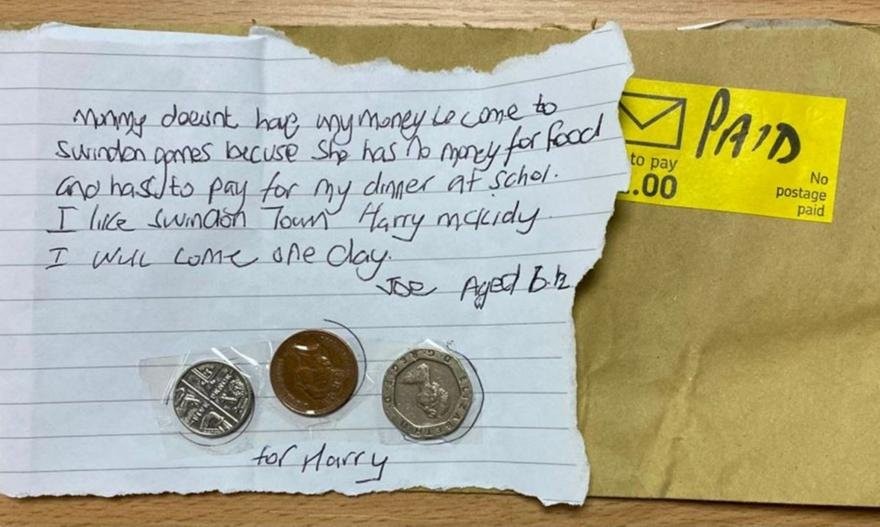 Mummy doesnt have any money to come to
Swindon games becuse she has no money for food
and has to pay for my dinner at schol.
I like swindon Town Harry mckidy.
I will come one day.
Joe Aged 6.½
for Harry
PAID
to pay
.00
No
postage
paid